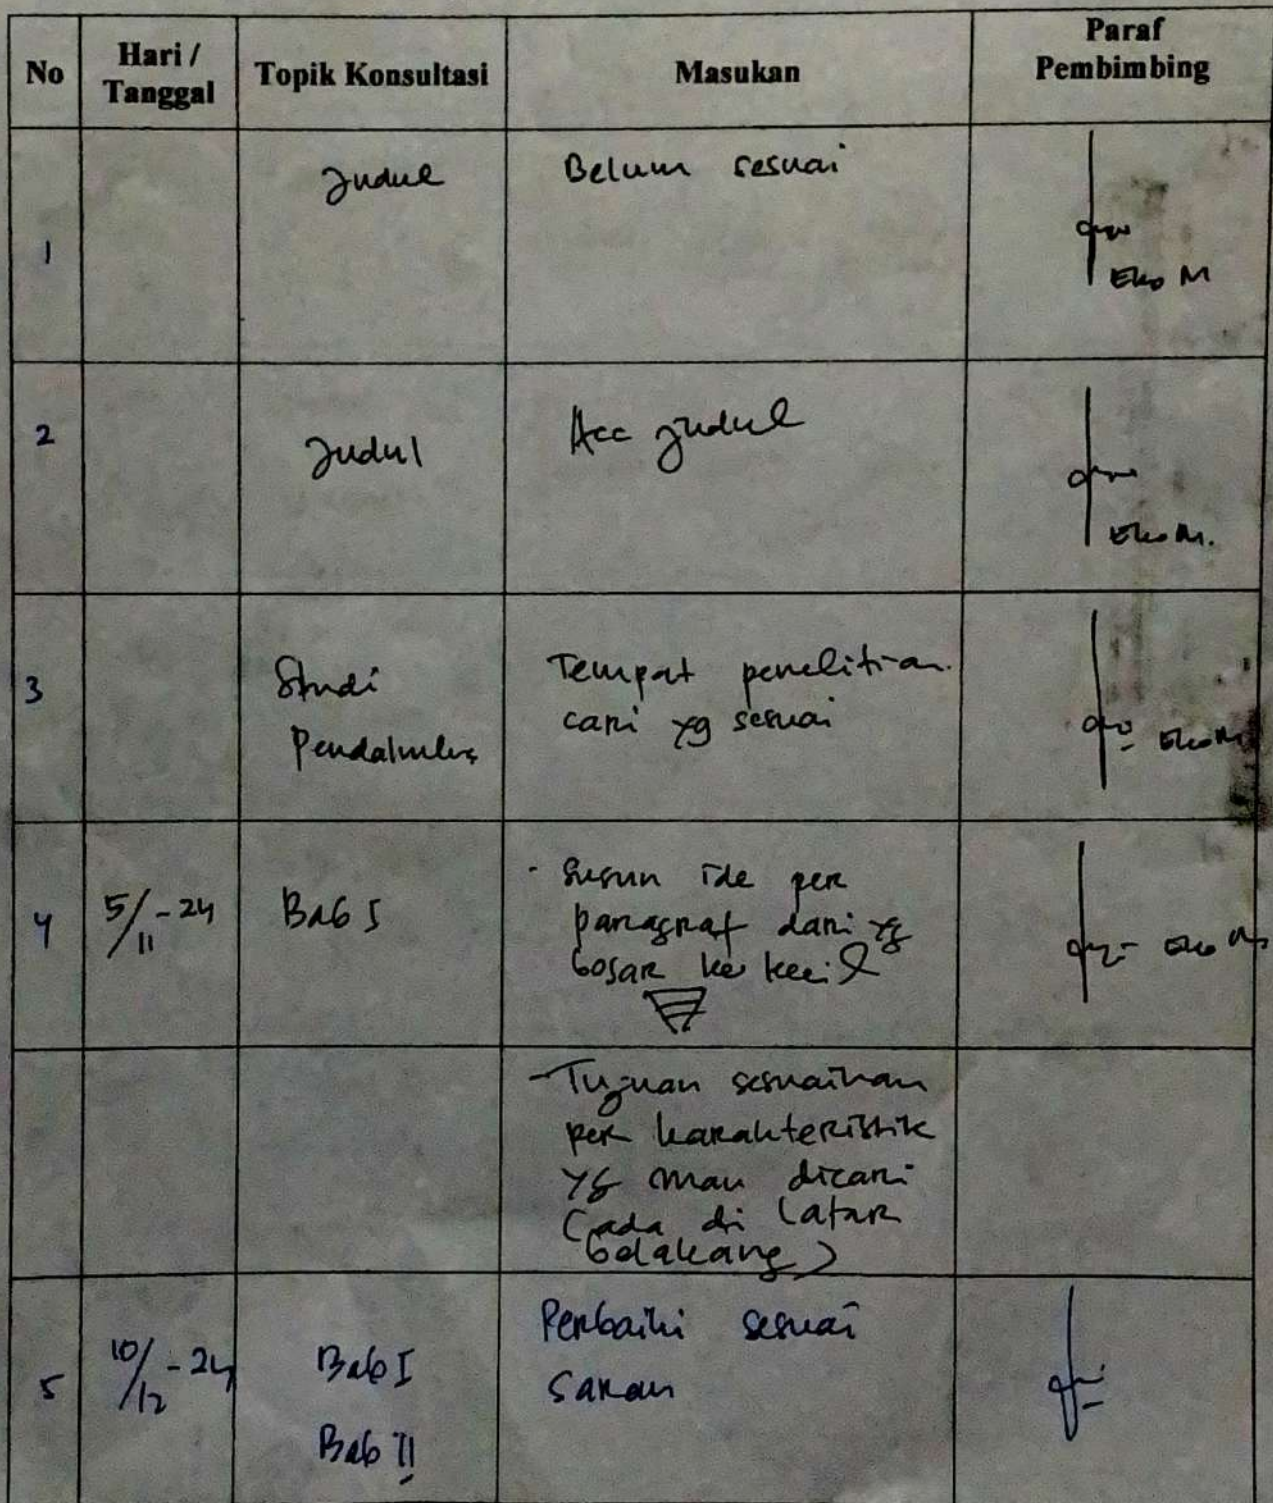 No
Hari /
Tanggal
Topik Konsultasi
Masukan
Paraf
Pembimbing
1
Judul
Belum sesuai
Eko M
2
Judul
Acc judul
Eko M.
3
Studi
Tempat penelitian.
cari yg sesuai
Eko M
4
5/11-24
Bab I
- Susun ide per
paragraf dari yg
besar ke kecil
Eko M
- Tujuan sesuaikan
per karakteristik
yg mau dicari
(ada di latar
belakang)
5
10/12-24
Bab I
Bab II
Perbaiki sesuai
saran